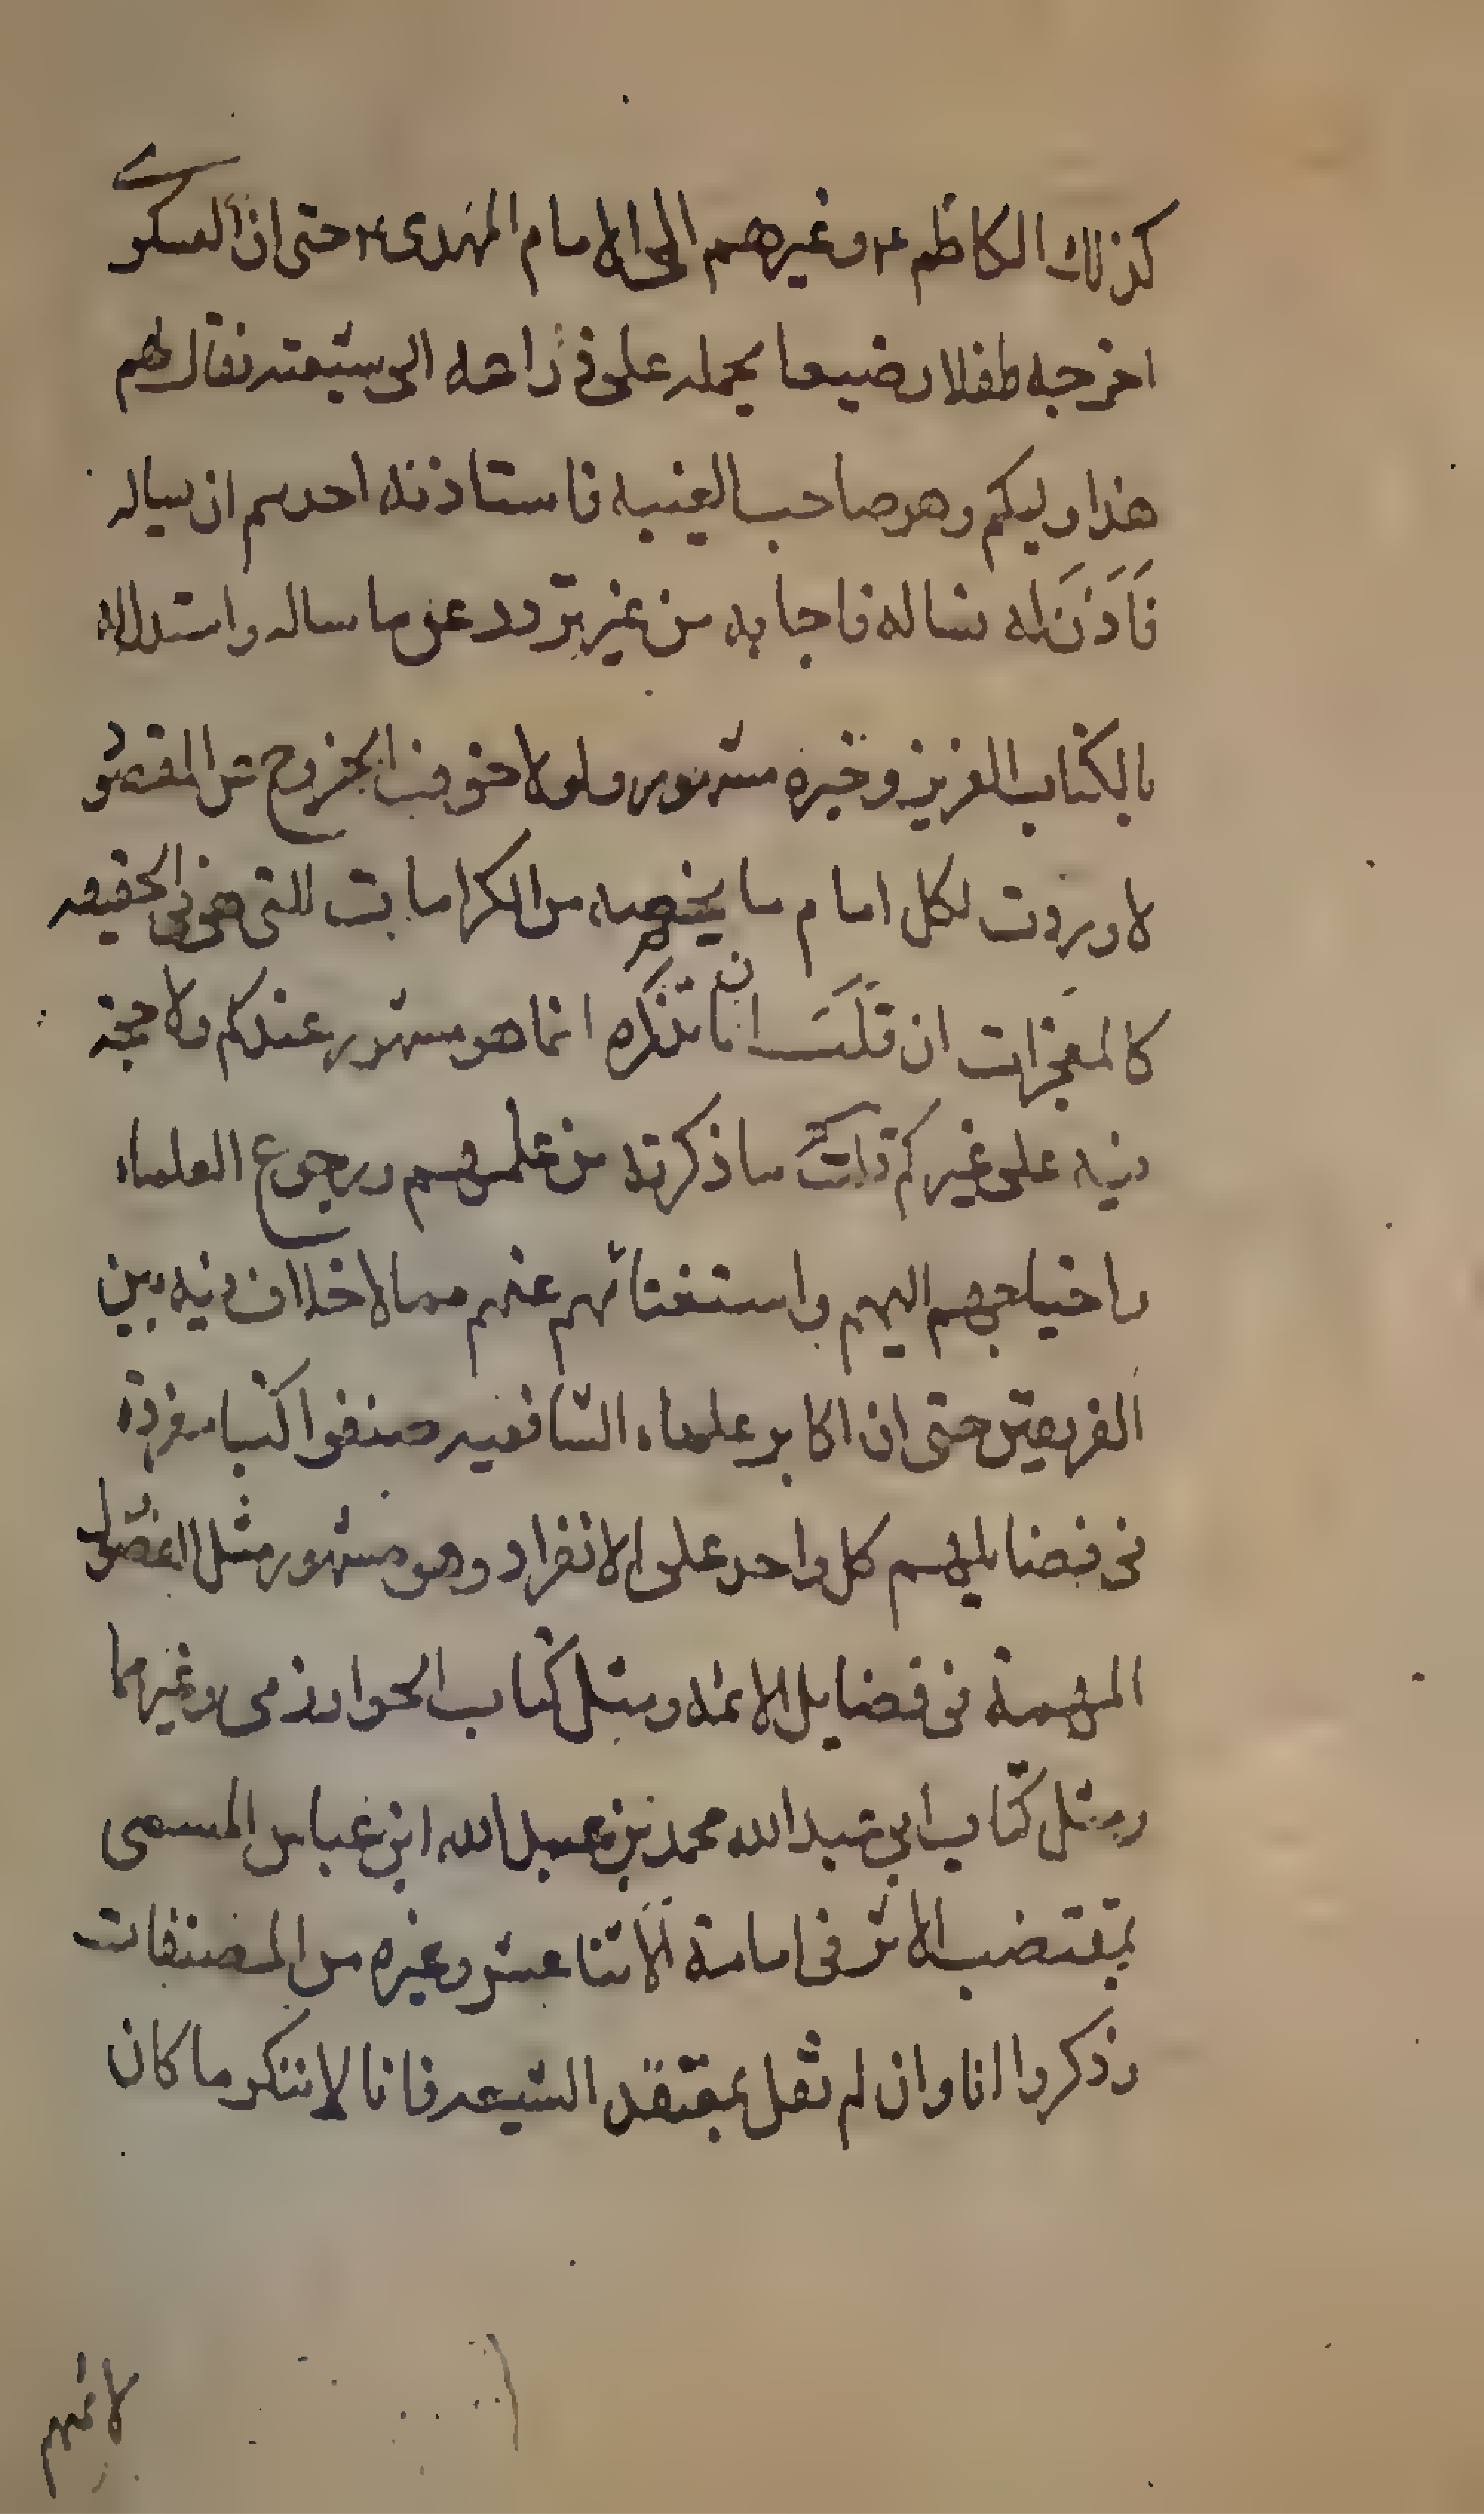 كذلك الكاظم ع وغيرهم الى الامام المهدى ع حتى ان العسكرى
اخرجه طفلا رضيعا يحمله على ذراعه الى شيعته فقال لهم
هذا وليكم وهو صاحب الغيبه فاستاذنه احدهم ان يساله
فَاَذنَ له فساله فاجابه من غير تردد عن ما ساله واستدلاله
بالكتاب العزيز وخبره مشهور ولولا خوف الخروج عن المقصود
لاوردت لكل امام ما يخصه من الكرامات التى هى فى الحقيقه
كالمعجزات ان قلتَ ان ما تذكره انما هو مشهور عندكم ولا حجة
فيه على غيركم قلتُ ما ذكرته من علمهم ورجوع العلماء
واحتياجهم اليهم واستغنائهم عنهم مما لا خلاف فيه بين
الفريقين حتى ان اكابر علماء الشافعيه صنفوا كتبا مفردة
فى فضايلهم كل واحد على الانفراد وهو مشهور مثل الفصول
المهمة فى فضايل الائمه ومثل كتاب الخوارزمى وغيرهما
ومثل كتاب ابى عبد الله محمد بن عبد الله ابن عباس المسمى
بمقتضب الاثر فى امامة الاثنا عشر وغيره من المصنفات
وذكروا انا وان لم نقل بمعتقد الشيعه فانا لا ننكر ما كان
لائمهم